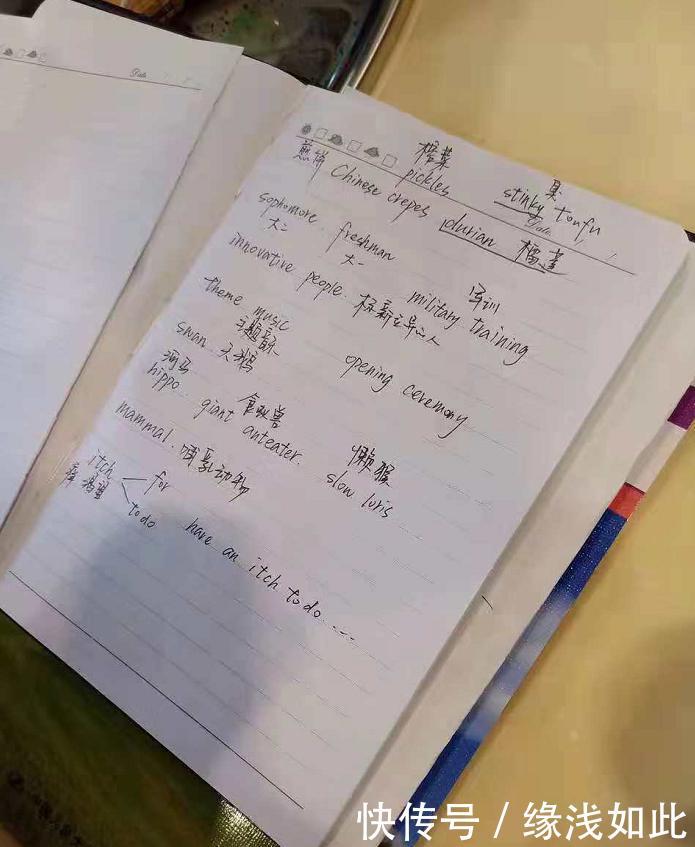 榨菜 臭
煎饼 Chinese crepes pickles stinky toufu
Date
durian 榴莲
sophomore. freshman
大二 大一
军训
innovative people. 标新立异之人 military training
theme music opening ceremony
主题音乐
swan 天鹅
河马 食蚁兽 懒猴
hippo. giant anteater. slow loris
mammal. 哺乳动物
itch for
痒 渴望 to do have an itch to do ....
Date
快传号 / 缘浅如此